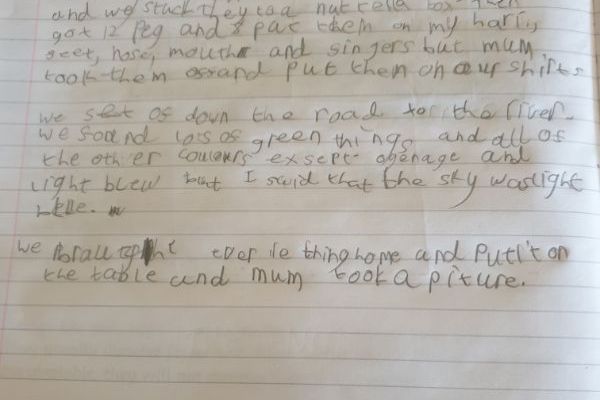 and we stuck they to a nutrella box then
got 12 Peg and 8 put them on my hari,
feet, nose, mouth and fingers but mum
took them off and put them on our shirts
we set of down the road for the river.
We found lots of green things and all of
the other coulours exsept and
light blew but I said that the sky was light
blue.
We everie thing home and Put it on
the table and mum took a piture.